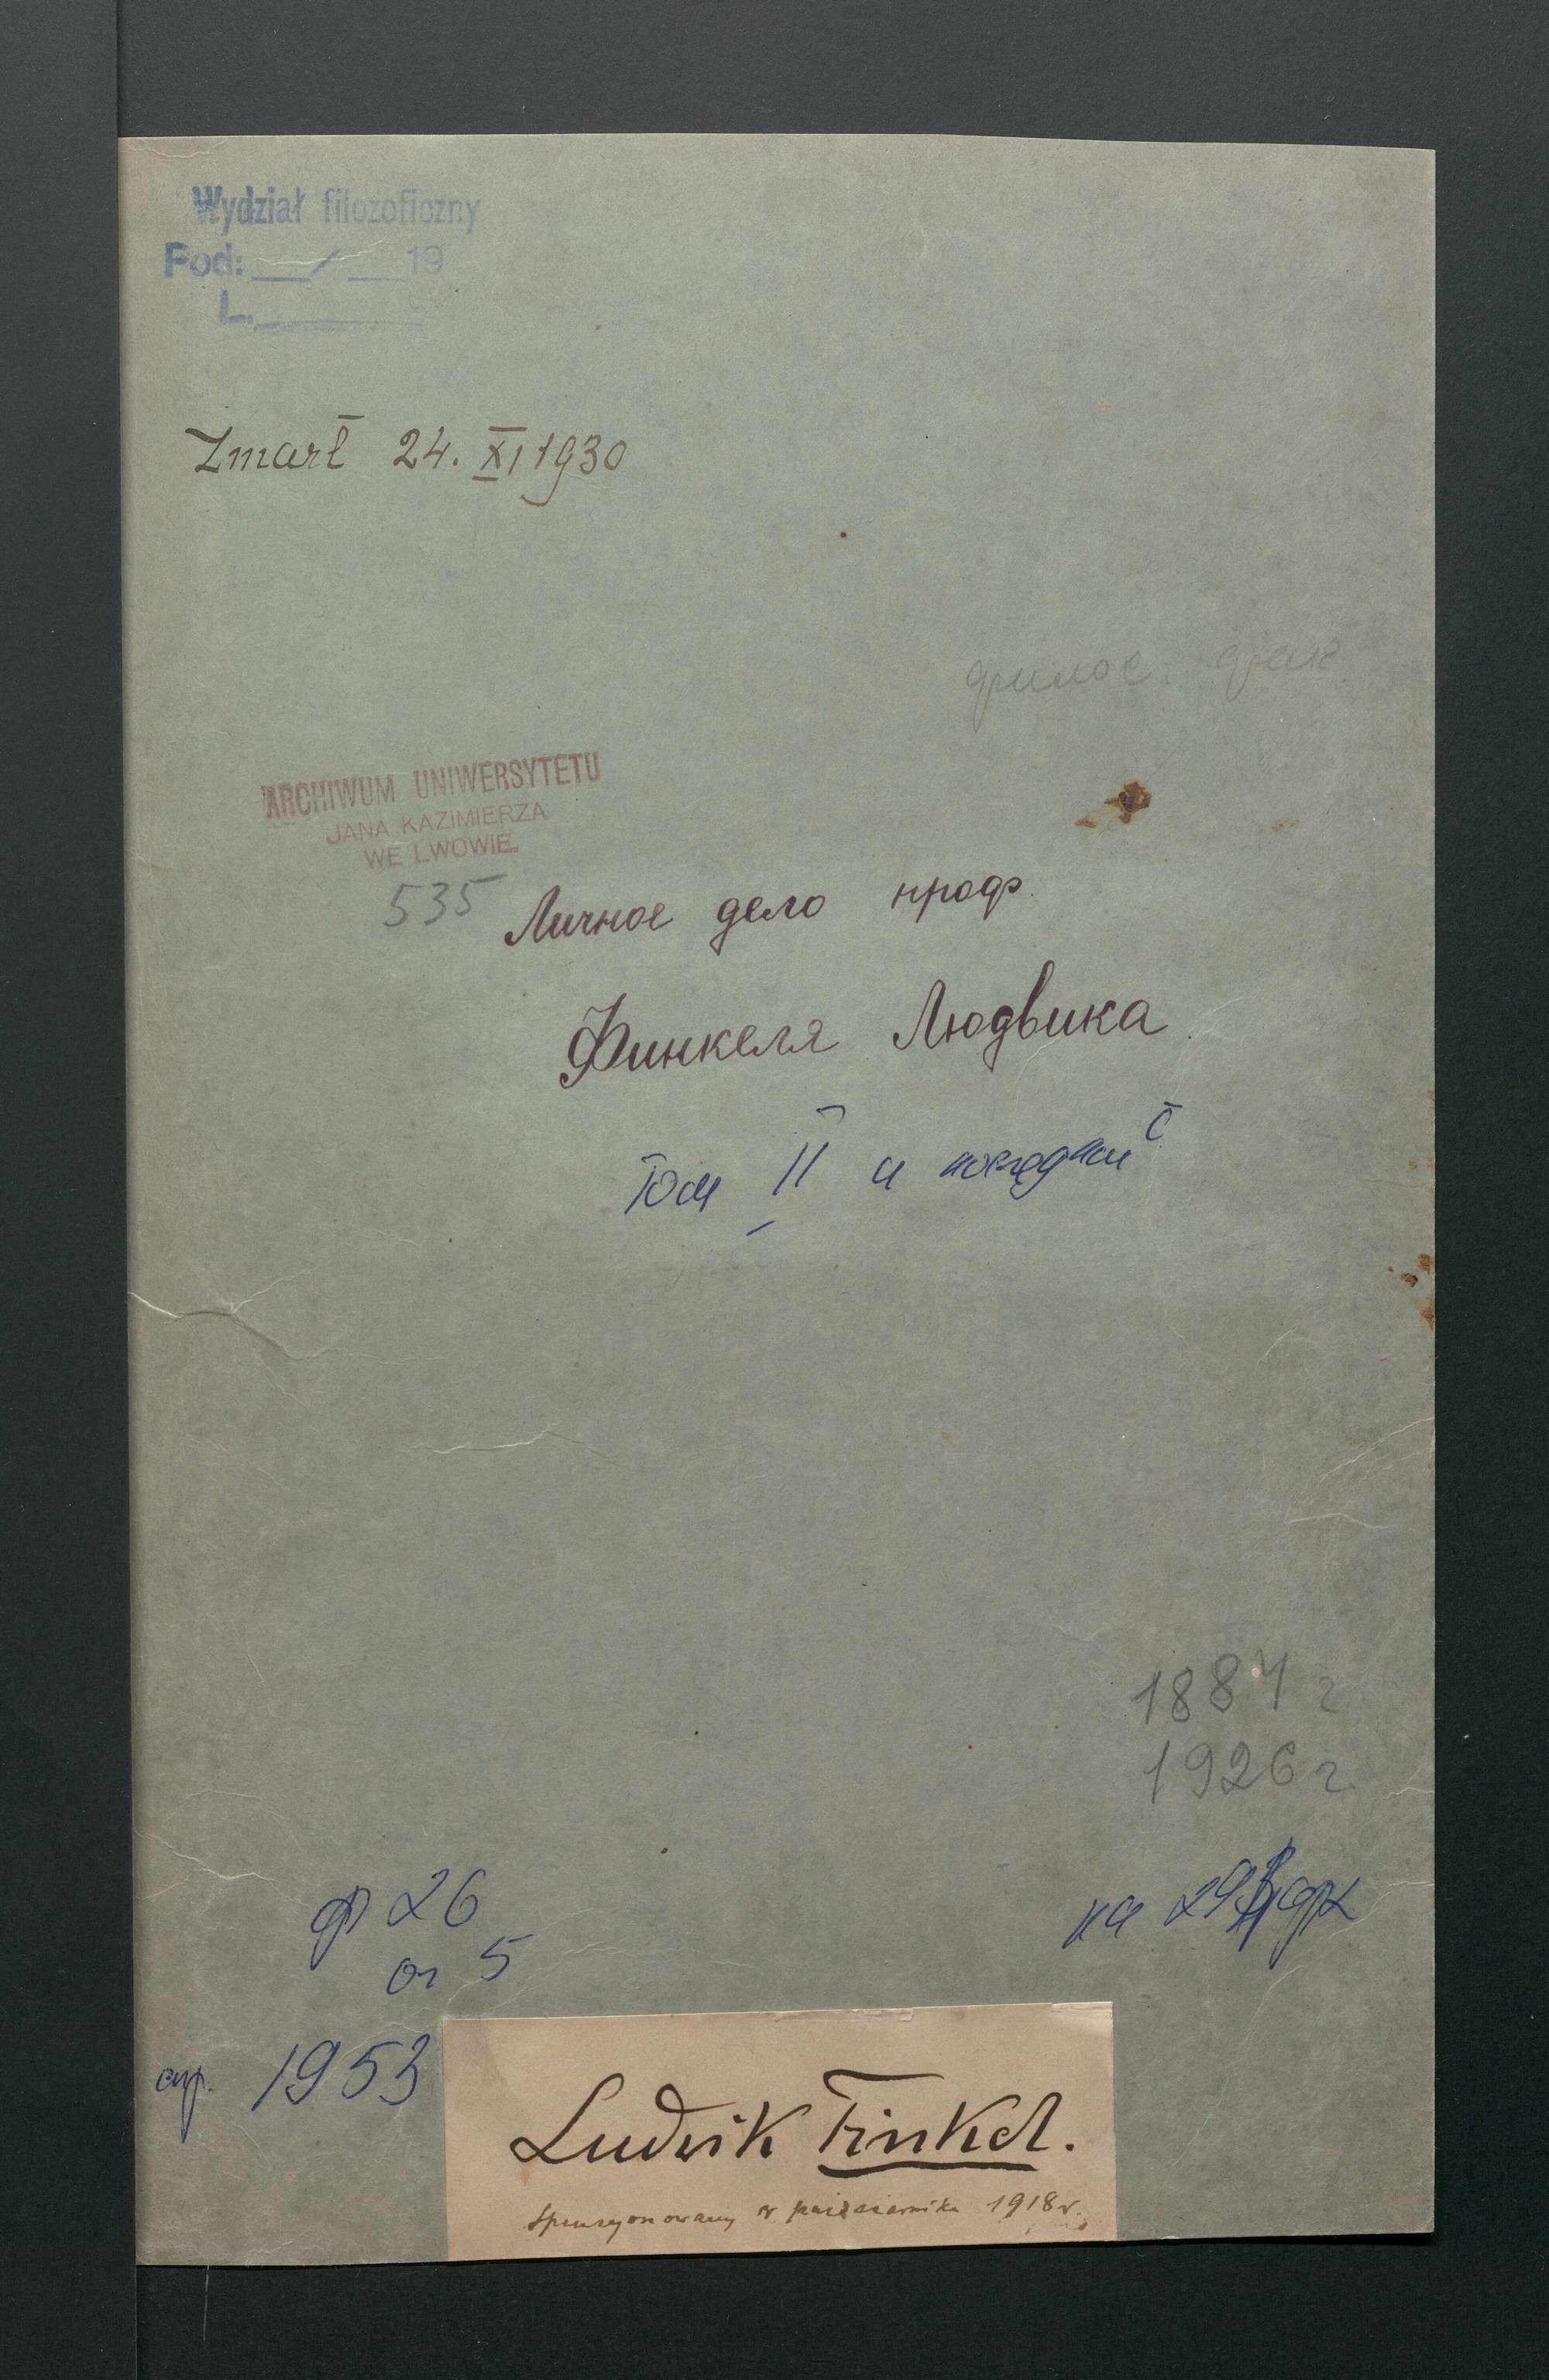 Wydział filozoficzny
Pod: __/__ 19
L.
Zmarł 24. XI 1930
филос. фак.
ARCHIWUM UNIWERSYTETU
JANA KAZIMIERZA
WE LWOWIE.
535
Личное дело проф.
Финкеля Людвика.
Том II и последний
1884 г
1926 г.
ф 26
оп 5
на 29
спр. 1953
Ludwik Finkel.
Spensyonowany w październiku 1918 r.